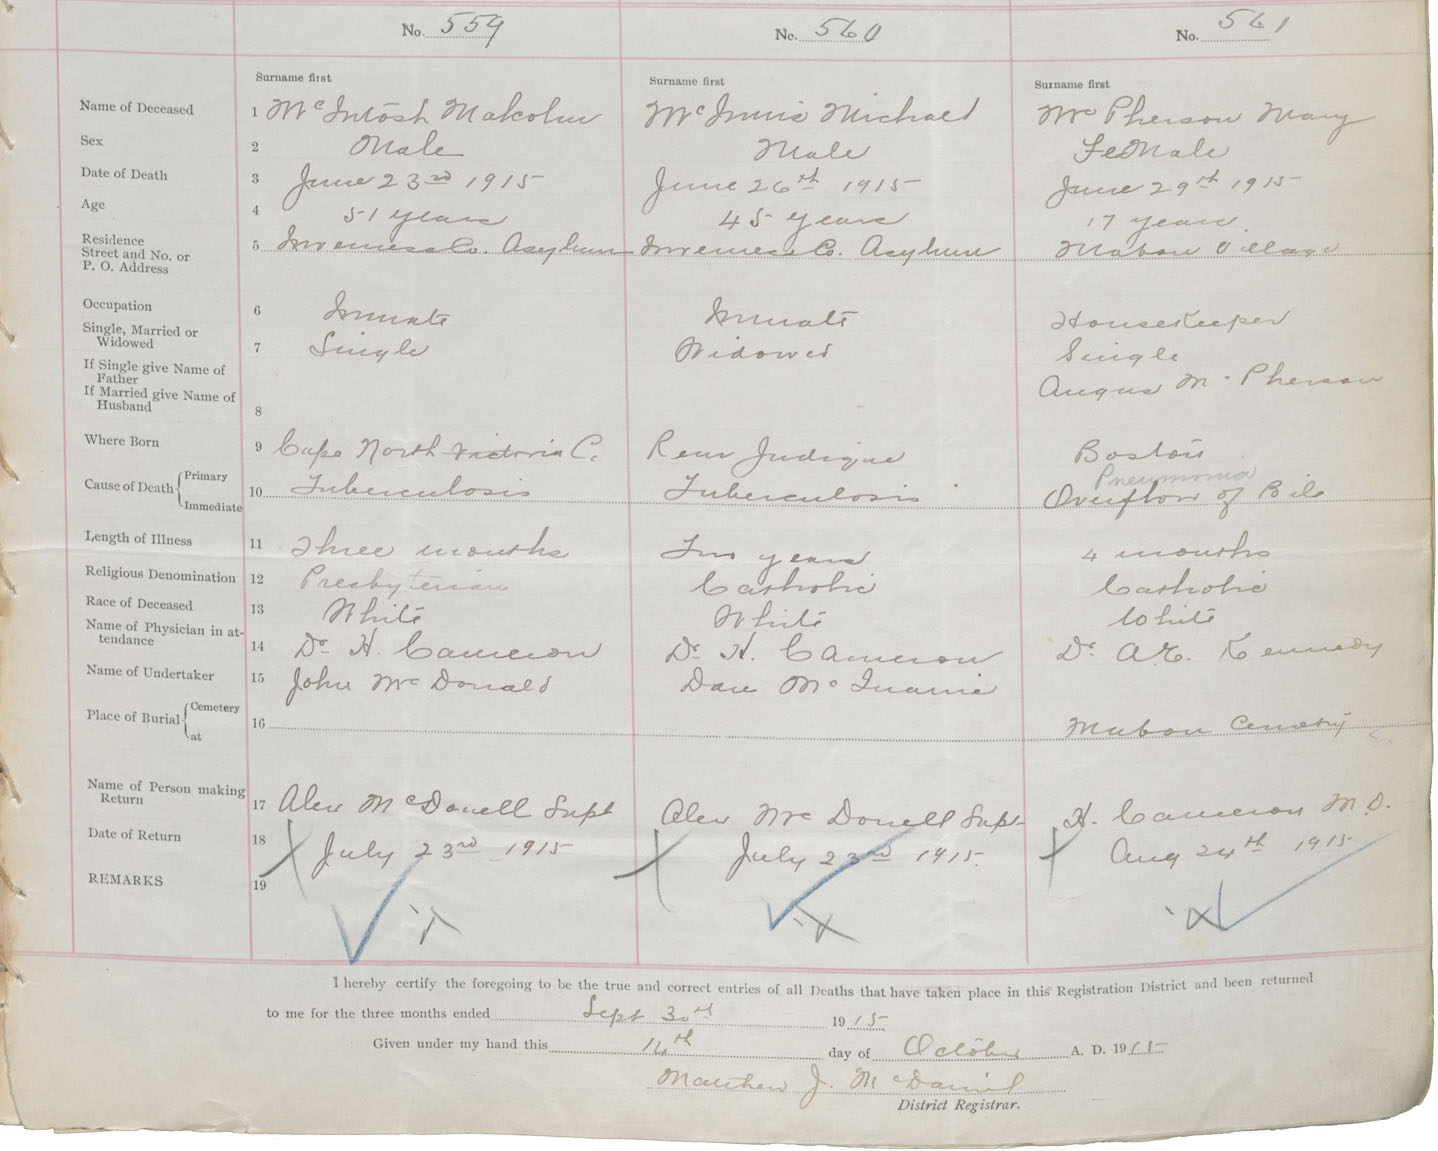 No. 559 No. 560 No. 561
Surname first Surname first Surname first
Name of Deceased 1 McIntosh Malcolm McInnis Michael McPherson Mary
Sex 2 Male Male FeMale
Date of Death 3 June 23rd 1915 June 26th 1915 June 29th 1915
Age 4 51 years 45 years 17 years
Residence
Street and No. or 5 Inverness Co. Asylum Inverness Co. Asylum Mabou Village
P. O. Address
Occupation 6 Inmate Inmate Housekeeper
Single, Married or
Widowed 7 Single Widowed Single
If Single give Name of
Father Angus McPherson
If Married give Name of
Husband 8
Where Born 9 Cape North Victoria C. Rear Judique Boston
Cause of Death Primary Pneumonia
10 Tuberculosis Tuberculosis Overflow of Bile
Immediate
Length of Illness 11 Three months Two years 4 months
Religious Denomination 12 Presbyterian Catholic Catholic
Race of Deceased 13 White White White
Name of Physician in at-
tendance 14 Dr H. Cameron Dr H. Cameron Dr A. Kennedy
Name of Undertaker 15 John McDonald Dan
Place of Burial Cemetery
16 Mabou Cemetry
at
Name of Person making
Return 17 Alex McDonell Supt Alex McDonell Supt H. Cameron M.D.
Date of Return 18 July 23rd 1915 July 23rd 1915. Aug 24th 1915
REMARKS 19
I hereby certify the foregoing to be the true and correct entries of all Deaths that have taken place in this Registration District and been returned
to me for the three months ended Sept 30th 1915
Given under my hand this 14th day of October A. D. 1915
Matthew J. McDaniel
District Registrar.